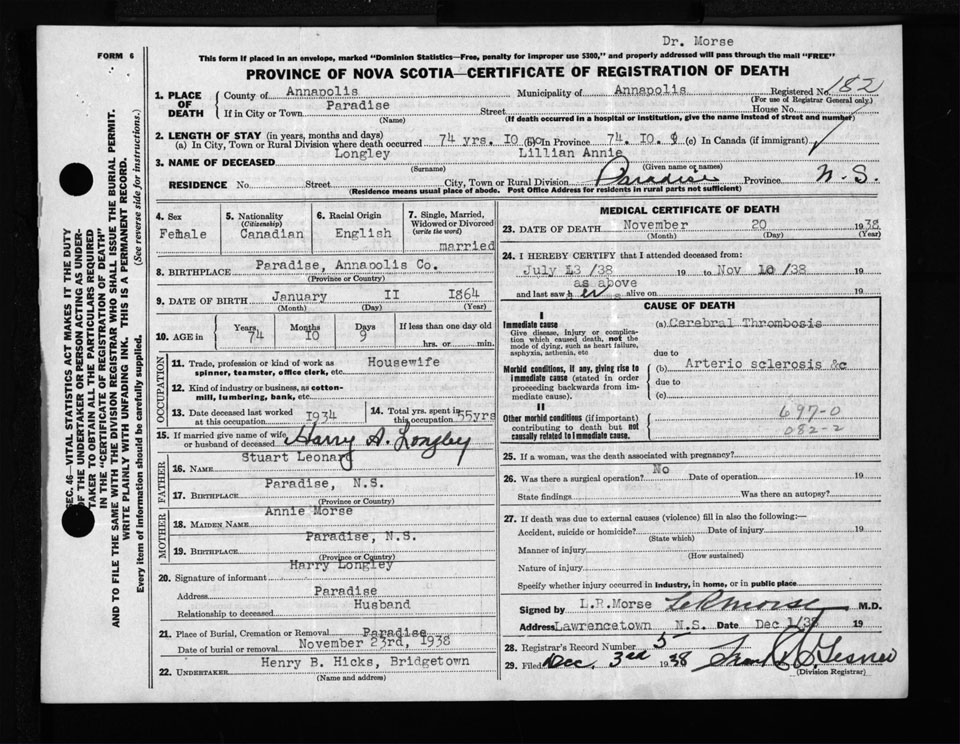 Dr. Morse
FORM 6
This form if placed in an envelope, marked "Dominion Statistics—Free, penalty for improper use $300," and properly addressed will pass through the mail "FREE"
PROVINCE OF NOVA SCOTIA—CERTIFICATE OF REGISTRATION OF DEATH
SEC. 46—VITAL STATISTICS ACT MAKES IT THE DUTY
OF THE UNDERTAKER OR PERSON ACTING AS UNDER-
TAKER TO OBTAIN ALL THE PARTICULARS REQUIRED
IN THE "CERTIFICATE OF REGISTRATION OF DEATH"
AND TO FILE THE SAME WITH THE DIVISION REGISTRAR WHO SHALL ISSUE THE BURIAL PERMIT.
WRITE PLAINLY WITH UNFADING INK. THIS IS A PERMANENT RECORD.
Every item of information should be carefully supplied. (See reverse side for instructions.)
1. PLACE OF DEATH
County of Annapolis Municipality of Annapolis Registered No. 182
(For use of Registrar General only.)
If in City or Town Paradise Street House No.
(Name) (If death occurred in a hospital or institution, give the name instead of street and number)
2. LENGTH OF STAY (in years, months and days)
(a) In City, Town or Rural Division where death occurred 74 yrs. 10 mo (b) In Province 74. 10. 9 (c) In Canada (if immigrant)
3. NAME OF DECEASED Longley Lillian Annie
(Surname) (Given name or names)
RESIDENCE No. Street City, Town or Rural Division Paradise Province N.S.
(Residence means usual place of abode. Post Office Address for residents in rural parts not sufficient)
4. Sex Female
5. Nationality (Citizenship) Canadian
6. Racial Origin English
7. Single, Married, Widowed or Divorced (write the word) married
8. BIRTHPLACE Paradise, Annapolis Co.
(Province or Country)
9. DATE OF BIRTH January II 1864
(Month) (Day) (Year)
10. AGE in Years 74 Months 10 Days 9 If less than one day old hrs. or min.
OCCUPATION
11. Trade, profession or kind of work as spinner, teamster, office clerk, etc. Housewife
12. Kind of industry or business, as cotton-mill, lumbering, bank, etc.
13. Date deceased last worked at this occupation 1934
14. Total yrs. spent in this occupation 55yrs
15. If married give name of wife or husband of deceased Harry A. Longley
FATHER
16. NAME Stuart Leonard
17. BIRTHPLACE Paradise, N.S.
(Province or Country)
MOTHER
18. MAIDEN NAME Annie Morse
19. BIRTHPLACE Paradise, N.S.
(Province or Country)
20. Signature of informant Harry Longley
Address Paradise
Relationship to deceased Husband
21. Place of Burial, Cremation or Removal Paradise
Date of burial or removal November 23rd, 1938
22. UNDERTAKER Henry B. Hicks, Bridgetown
(Name and Address)
MEDICAL CERTIFICATE OF DEATH
23. DATE OF DEATH November 20 1938
(Month) (Day) (Year)
24. I HEREBY CERTIFY that I attended deceased from:
July 13 /38 19 to Nov 10 /38 19
as above
and last saw h er alive on 19
CAUSE OF DEATH
I
Immediate cause
Give disease, injury or complication which caused death, not the mode of dying, such as heart failure, asphyxia, asthenia, etc
(a) Cerebral Thrombosis
due to
Morbid conditions, if any, giving rise to immediate cause (stated in order proceeding backwards from immediate cause).
(b) Arterio sclerosis &c
due to
(c)
II
Other morbid conditions (if important) contributing to death but not causally related to immediate cause.
697-0
082-2
25. If a woman, was the death associated with pregnancy?
26. Was there a surgical operation? No Date of operation 19
State findings Was there an autopsy?
27. If death was due to external causes (violence) fill in also the following:—
Accident, suicide or homicide? Date of injury 19
(State which)
Manner of injury
(How sustained)
Nature of injury
Specify whether injury occurred in industry, in home, or in public place
Signed by L.R.Morse LR Morse M.D.
Address Lawrencetown N.S. Date Dec 1/38 19
28. Registrar's Record Number 5
29. Filed Dec. 3rd 1938
(Division Registrar)